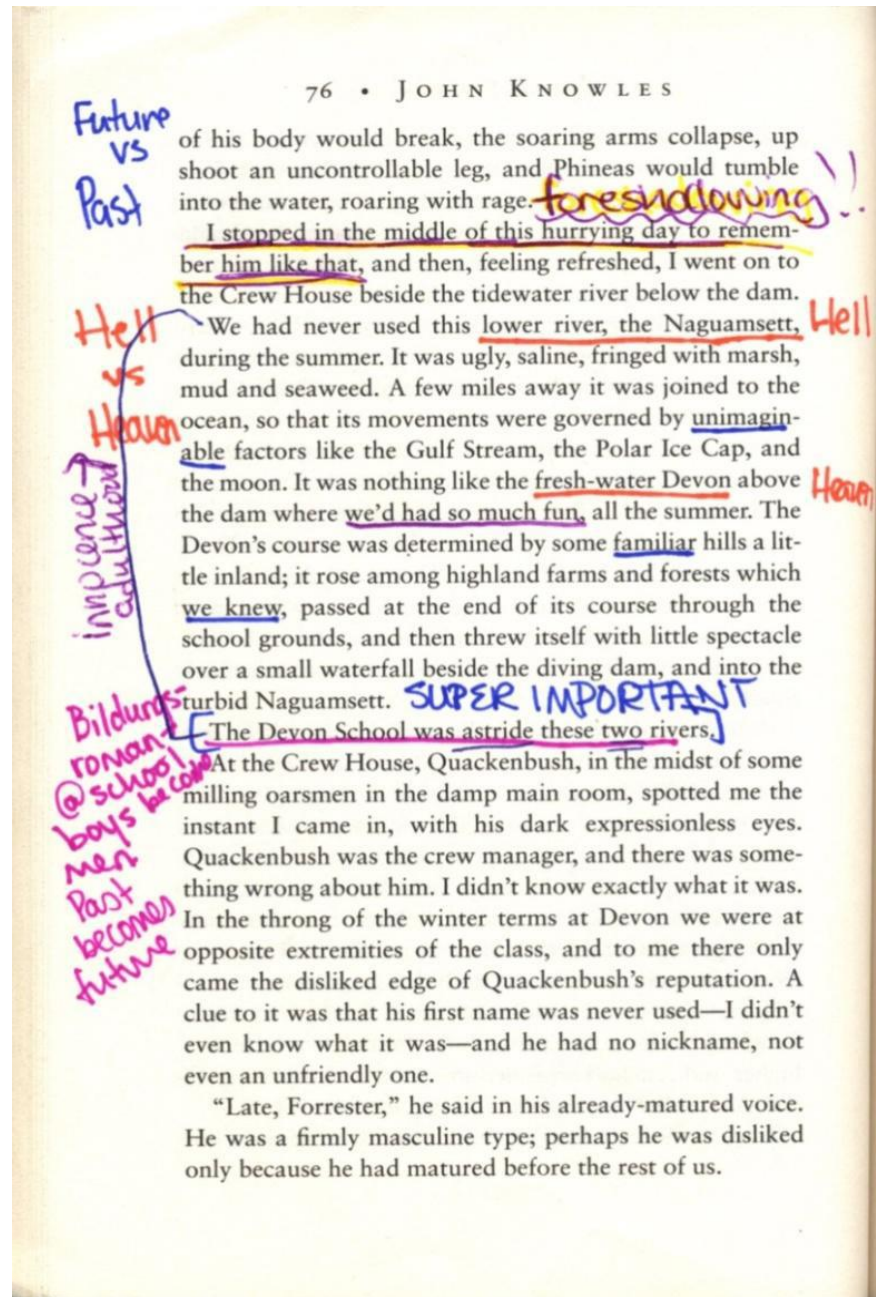 76 • JOHN KNOWLES
Future
vs
Past
of his body would break, the soaring arms collapse, up
shoot an uncontrollable leg, and Phineas would tumble
into the water, roaring with rage. foreshadowing!!
I stopped in the middle of this hurrying day to remem-
ber him like that, and then, feeling refreshed, I went on to
the Crew House beside the tidewater river below the dam.
Hell
vs
Heaven
We had never used this lower river, the Naguamsett, Hell
during the summer. It was ugly, saline, fringed with marsh,
mud and seaweed. A few miles away it was joined to the
ocean, so that its movements were governed by unimagin-
able factors like the Gulf Stream, the Polar Ice Cap, and
the moon. It was nothing like the fresh-water Devon above Heaven
the dam where we'd had so much fun, all the summer. The
Devon's course was determined by some familiar hills a lit-
tle inland; it rose among highland farms and forests which
we knew, passed at the end of its course through the
school grounds, and then threw itself with little spectacle
over a small waterfall beside the diving dam, and into the
turbid Naguamsett. SUPER IMPORTANT
innocence →
adulthood
[The Devon School was astride these two rivers.]
Bildungs-
roman-
@school
boys become
men
Past
becomes
future
At the Crew House, Quackenbush, in the midst of some
milling oarsmen in the damp main room, spotted me the
instant I came in, with his dark expressionless eyes.
Quackenbush was the crew manager, and there was some-
thing wrong about him. I didn't know exactly what it was.
In the throng of the winter terms at Devon we were at
opposite extremities of the class, and to me there only
came the disliked edge of Quackenbush's reputation. A
clue to it was that his first name was never used—I didn't
even know what it was—and he had no nickname, not
even an unfriendly one.
"Late, Forrester," he said in his already-matured voice.
He was a firmly masculine type; perhaps he was disliked
only because he had matured before the rest of us.